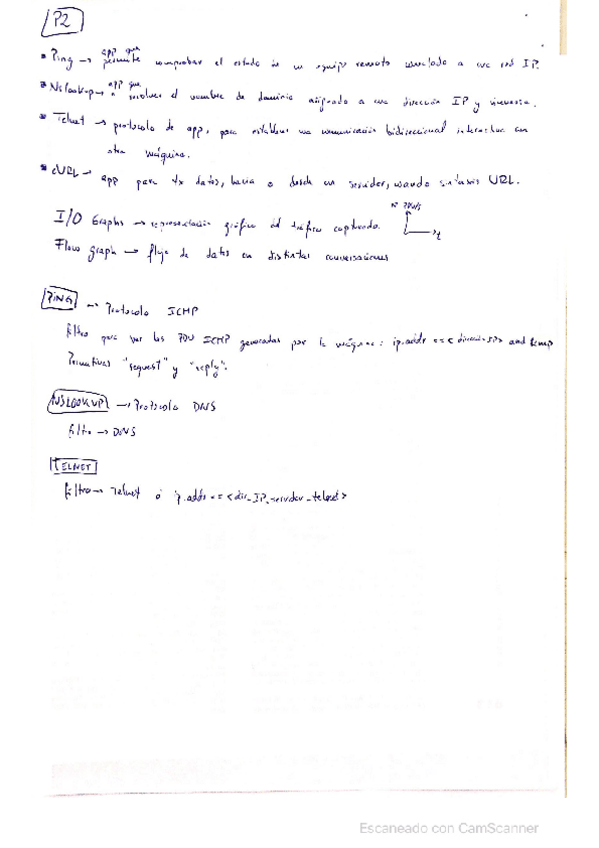 P2
• Ping → app que permite comprobar el estado de un equipo remoto conectado a una red IP.
• Nslookup → app que resolver el nombre de dominio asignado a una dirección IP y viceversa.
• Telnet → protocolo de app, para establecer una comunicación bidireccional interactiva con
otra máquina.
• cURL → app para tx datos, hacia o desde un servidor, usando sintaxis URL.
I/O Graphs → representación gráfica del tráfico capturado. Nº PDUs t
Flow graph → flujo de datos en distintas conversaciones
PING → Protocolo ICMP
Filtro para ver las PDU ICMP generadas por la máquina: ip.addr ==<dirección IP> and icmp
Primitivas "request" y "reply".
NSLOOKUP → Protocolo DNS
filtro → DNS
TELNET
filtro → Telnet ó ip.addr ==<dir_IP_servidor_telnet>
Escaneado con CamScanner